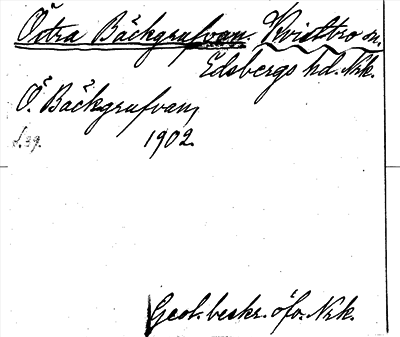 Östra Bäckgrufvan. Kvistbro sn.
Edsbergs hd. Nrk.
Ö. Bäckgrufvan,
s. 39. 1902.
Geol. beskr. öfv. Nrk.